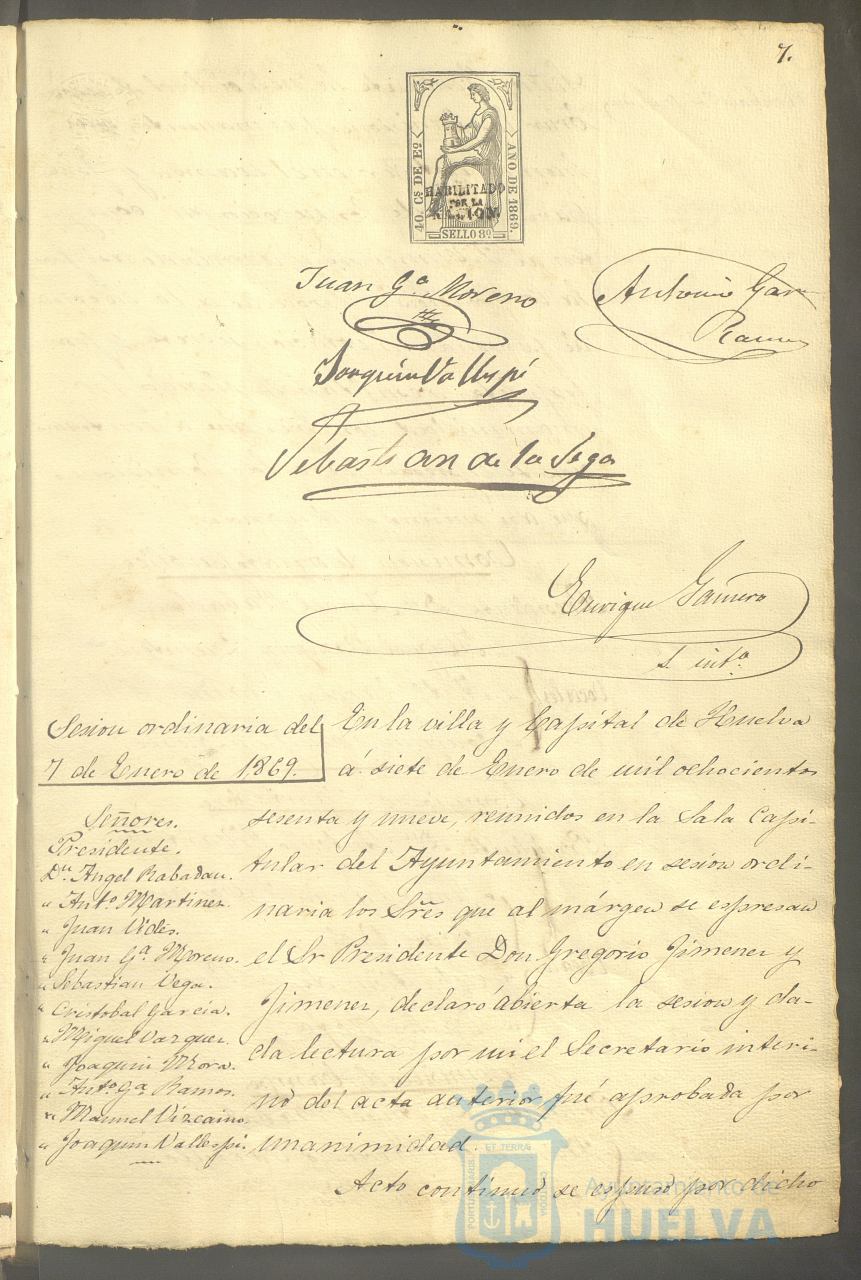 7.
40. Cs. DE. Eo.
AÑO DE 1869.
HABILITADO
POR LA
NACION.
SELLO 8º
Juan Gª Moreno
Antonio Gar
Ramos
Joaquin Vallespi
Sebastian de la Vega
Enrique Gamero
S. intº
Sesion ordinaria del
7 de Enero de 1869.
Señores.
Presidente.
Dn. Angel Rabadan.
" Antº Martinez.
" Juan Vides.
" Juan Gª Moreno.
" Sebastian Vega.
" Cristobal Garcia.
" Miguel Vazquez.
" Joaquin Mora.
" Antº Gª Ramos.
" Manuel Vizcaino.
" Joaquin Vallespi.
En la villa y Capital de Huelva
á siete de Enero de mil ochocientos
sesenta y nueve, reunidos en la Sala Capi-
tular del Ayuntamiento en sesion ordi-
naria los Sres que al márgen se espresan
el Sr Presidente Don Gregorio Jimenez y
Jimenez, declaró abierta la sesion y da-
da lectura por mi el Secretario interi-
no del acta anterior fué aprobada por
unanimidad.
Acto continuo se espuso por dicho
Ayuntamiento de
HUELVA